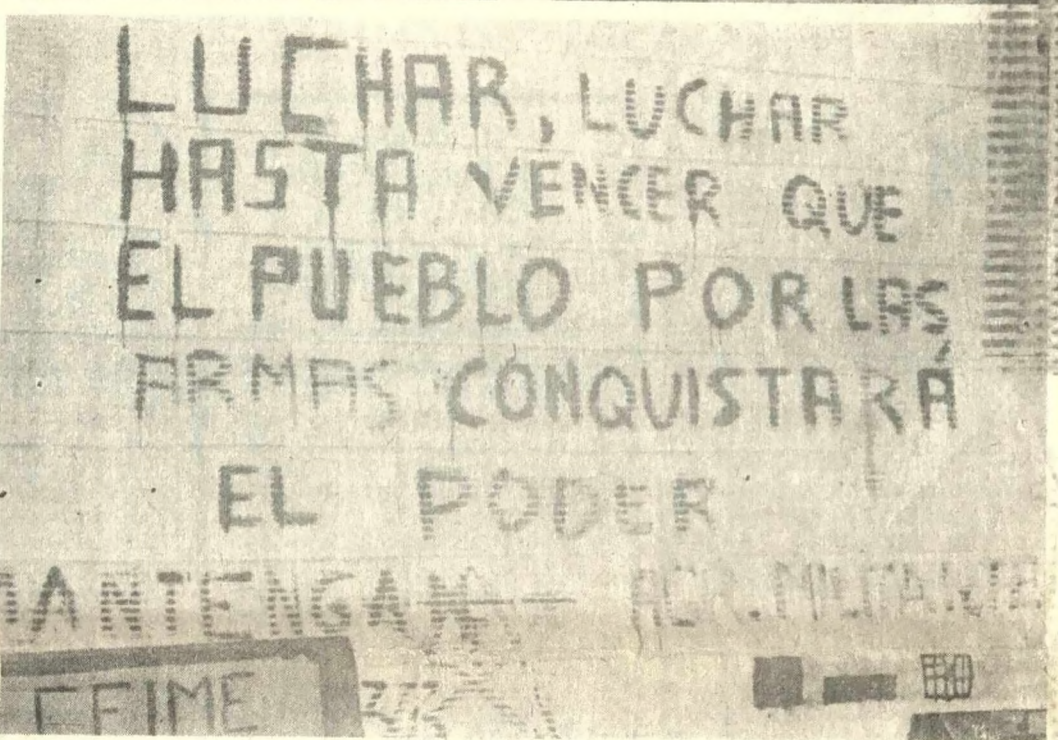 LUCHAR, LUCHAR
HASTA VENCER QUE
EL PUEBLO POR LAS
ARMAS CONQUISTARÁ
EL PODER
MANTENGAN
CFIME